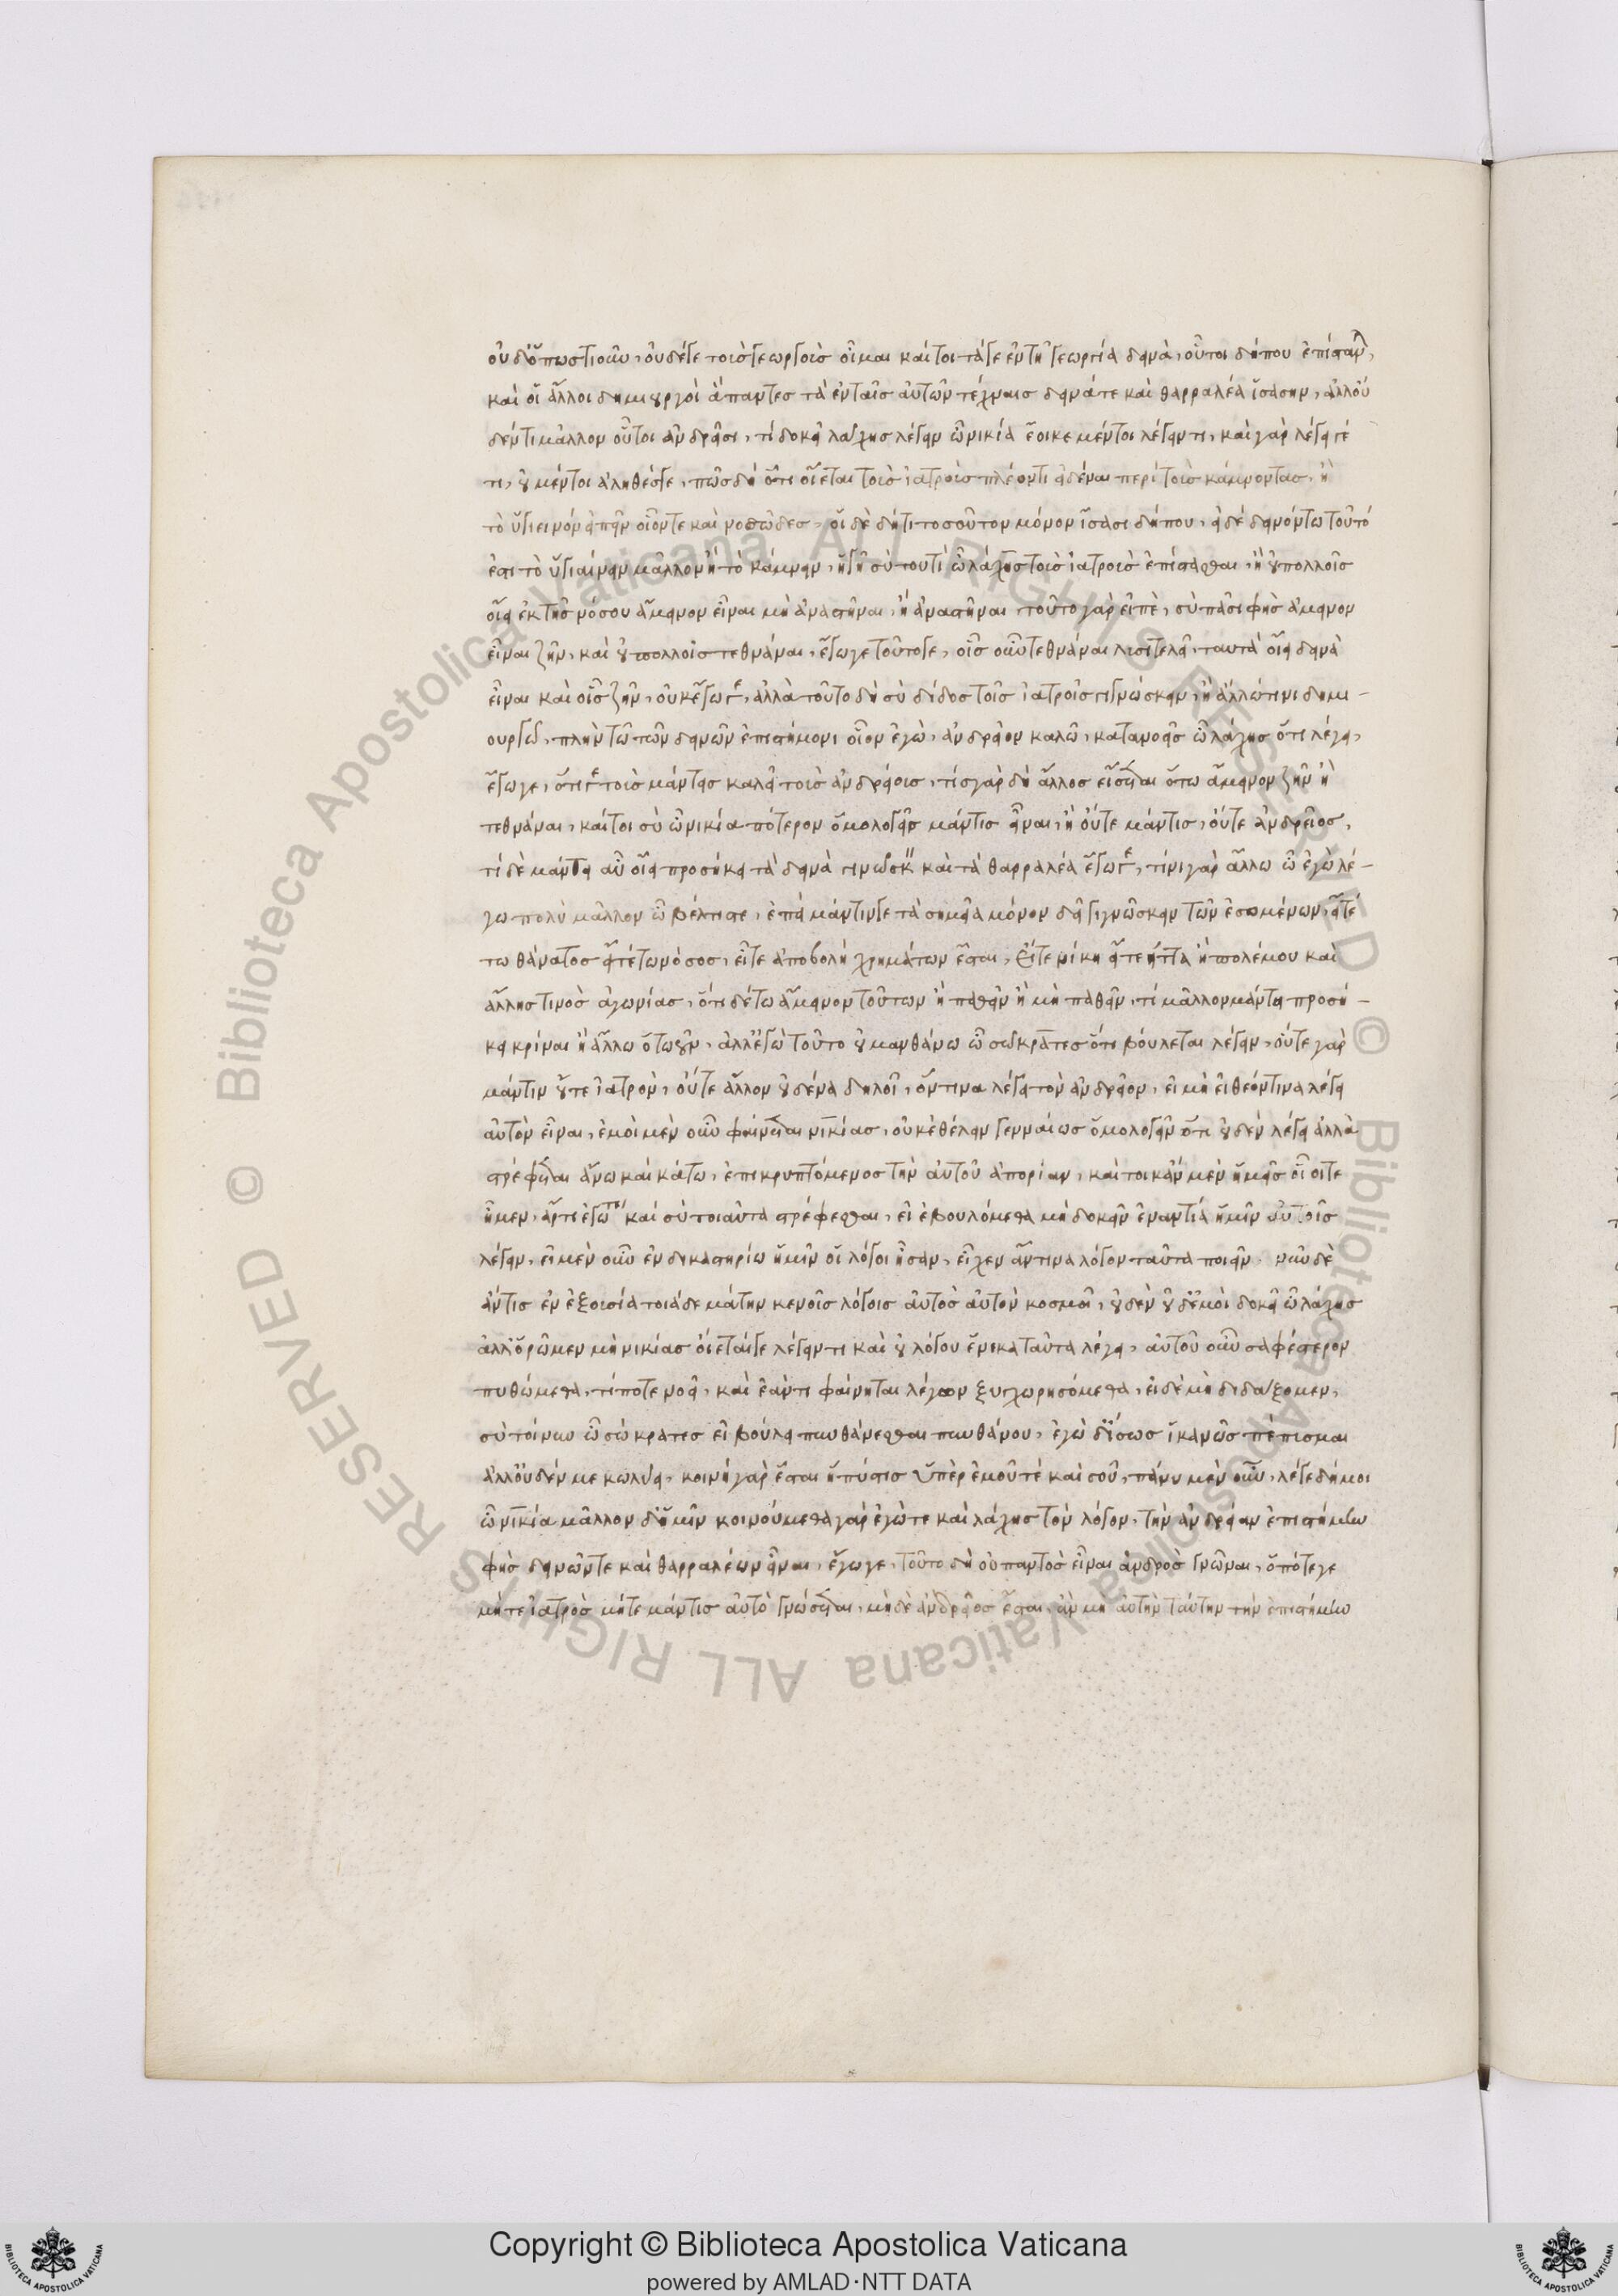 οὐδ' ὁπωστιοῦν, οὐδέ γε τοὺς γεωργοὺς οἶμαι καί τοι τά γε ἐν τῇ γεωργία δεινὰ, οὗτοι δήπου ἐπίσταν,
καὶ οἱ ἄλλοι δημιουργοὶ ἅπαντες τὰ ἐν ταῖς αὐτῶν τέχναις δεινά τε καὶ θαρραλέα ἴσασιν, ἀλλ' οὐ
δέν τι μᾶλλον οὗτοι ἀνδρεῖοι, τί δοκεῖ λάχης λέγειν ὦ νικία ἔοικε μέντοι λέγειν τι, καὶ γὰρ λέγει γέ
τι, οὐ μέντοι ἀληθές γε, πῶς δή ὅτι οἴεται τοὺς ἰατροὺς πλέον τι εἰδέναι περὶ τοὺς κάμνοντας, ἢ
τὸ ὑγιεινὸν εἰπεῖν οἷόν τε καὶ νοσῶδες, οἱ δὲ δή τι τοσοῦτον μόνον ἴσασι δήπου, εἰ δὲ δεινόν τω τοῦτό
ἐστι τὸ ὑγιαίνειν μᾶλλον ἢ τὸ κάμνειν, ἡγῇ σὺ τουτὶ ὦ λάχης τοὺς ἰατροὺς ἐπίστασθαι, ἢ οὐ πολλοῖς
οἴει ἐκ τῆς νόσου ἄμεινον εἶναι μὴ ἀναστῆναι, ἢ ἀναστῆναι, τοῦτο γὰρ εἰπὲ, σὺ πᾶσι φὴς ἄμεινον
εἶναι ζῆν, καὶ οὐ πολλοῖς τεθνάναι, ἔγωγε τοῦτό γε, οἷς οὖν τεθνάναι λυσιτελεῖ, ταυτὰ οἴει δεινὰ
εἶναι καὶ οἷς ζῆν, οὐκ ἔγωγε, ἀλλὰ τοῦτο δὴ σὺ δίδος τοῖς ἰατροῖς γιγνώσκειν, ἢ ἄλλω τινὶ δημι-
ουργῶ, πλὴν τῶ τῶν δεινῶν ἐπιστήμονι οἷον ἐγὼ, ἀνδρεῖον καλῶ, κατανοεῖς ὦ λάχης ὅτι λέγει,
ἔγωγε, ὅτι γε τοὺς μάντεις καλεῖ τοὺς ἀνδρείους, τίς γὰρ δὴ ἄλλος εἴσεται ὅτω ἄμεινον ζῆν ἢ
τεθνάναι, καίτοι σὺ ὦ νικία πότερον ὁμολογεῖς μάντις εἶναι, ἢ οὔτε μάντις, οὔτε ἀνδρεῖος,
τί δὲ μάντει αὖ οἴει προσήκει τὰ δεινὰ γιγνώσκειν καὶ τὰ θαρραλέα ἔγωγε, τίνι γὰρ ἄλλω ὧ ἐγὼ λέ-
γω πολὺ μᾶλλον ὦ βέλτιστε, ἐπεὶ μάντιν γε τὰ σημεῖα μόνον δεῖ γιγνώσκειν τῶν ἐσομένων, εἴτέ
τω θάνατος εἴτέ τω νόσος, εἴτε ἀποβολὴ χρημάτων ἔσται, εἴτε νίκη εἴτε ἧττα ἢ πολέμου καὶ
ἄλλης τινὸς ἀγωνίας, ὅτι δέ τω ἄμεινον τούτων ἢ παθεῖν ἢ μὴ παθεῖν, τί μᾶλλον μάντει προσή-
κει κρίναι ἢ ἄλλω ὁτωοῦν, ἀλλ' ἐγὼ τοῦτο οὐ μανθάνω ὦ σώκρατες ὅτι βούλεται λέγειν, οὔτε γὰρ
μάντιν οὔτε ἰατρὸν, οὔτε ἄλλον οὐδένα δηλοῖ, ὅντινα λέγει τὸν ἀνδρεῖον, εἰ μὴ εἰ θεόν τινα λέγει
αὐτὸν εἶναι, ἐμοὶ μὲν οὖν φαίνεται νικίας, οὐκ ἐθέλειν γενναίως ὁμολογεῖν ὅτι οὐδὲν λέγει ἀλλὰ
στρέφεται ἄνω καὶ κάτω, ἐπικρυπτόμενος τὴν αὑτοῦ ἀπορίαν, καί τοι κἂν μὲν ἡμεῖς οἷοί τε
ἦμεν, ἄρτι ἐγώ τε καὶ σὺ τοιαῦτα στρέφεσθαι, εἰ ἐβουλόμεθα μὴ δοκεῖν ἐναντία ἡμῖν αὐτοῖς
λέγειν, εἰ μὲν οὖν ἐν δικαστηρίω ἡμῖν οἱ λόγοι ἦσαν, εἶχεν ἄν τινα λόγον ταῦτα ποιεῖν, νῦν δὲ
ἄν τις ἐν ἐξουσία τοιᾶδε μάτην κενοῖς λόγοις αὐτὸς αὑτὸν κοσμοῖ, οὐδὲν οὐδ' ἐμοὶ δοκεῖ ὦ λάχης
ἀλλ' ὁρῶμεν μὴ νικίας οἴεταί γε λέγειν τι καὶ οὐ λόγου ἕνεκα ταῦτα λέγει, αὐτοῦ οὖν σαφέστερον
πυθώμεθα, τί ποτε νοεῖ, καὶ ἐάν τι φαίνηται λέγων ξυγχωρησόμεθα, εἰ δὲ μὴ διδάξομεν,
σὺ τοίνυν ὦ σώκρατες εἰ βούλει πυνθάνεσθαι πυνθάνου, ἐγὼ δ' ἴσως ἱκανῶς πέπυσμαι
ἀλλ' οὐδέν με κωλύει, κοινὴ γὰρ ἔσται ἡ πύστις ὑπὲρ ἐμοῦ τέ καὶ σοῦ, πάνυ μὲν οὖν, λέγε δή μοι
ὦ νικία μᾶλλον δ' ἡμῖν κοινούμεθα γὰρ ἐγώ τε καὶ λάχης τὸν λόγον, τὴν ἀνδρείαν ἐπιστήμην
φὴς δεινῶν τε καὶ θαρραλέων εἶναι, ἔγωγε, τοῦτο δὴ οὐ παντὸς εἶναι ἀνδρὸς γνῶναι, ὁπότε γε
μήτε ἰατρὸς μήτε μάντις αὐτὸ γνώσεται, μὴ δὲ ἀνδρεῖος ἔσται, ἂν μὴ αὐτὴν ταύτην τὴν ἐπιστήμην
Copyright © Biblioteca Apostolica Vaticana
powered by AMLAD·NTT DATA